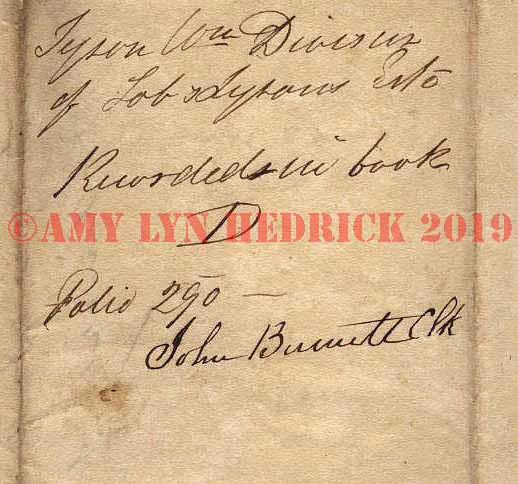 Tyson Wm Division
of Job Tysons Esto
Recorded in book
D
©AMY LYN HEDRICK 2019
Folio 290 —
John Burnett Clk